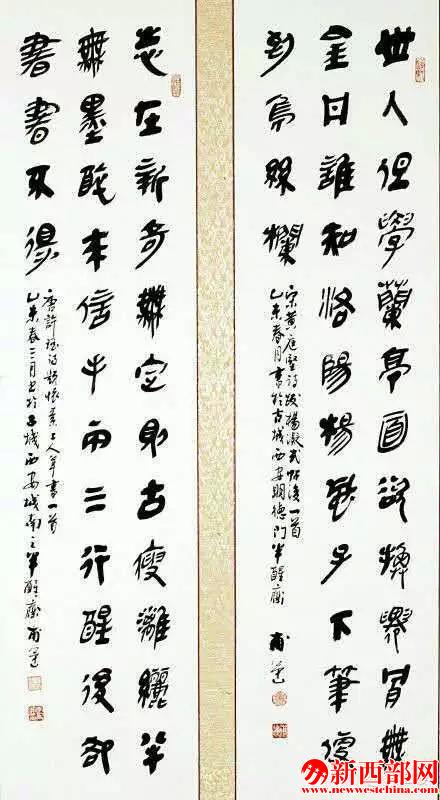 世人但學蘭亭面欲換凡骨無
金丹誰知洛陽楊風子下筆便
到烏絲欄
宋黃庭堅詩跋楊凝式帖後一首
乙未春月書於古城西安明德門半醒齋
志在新奇無定則古瘦灕纚半
無墨醉來信手兩三行醒後卻
書書不得
唐許瑤詩題懷素上人草書一首
乙未春三月書於古城西安城南之半醒齋
新西部网
www.newwestchina.com